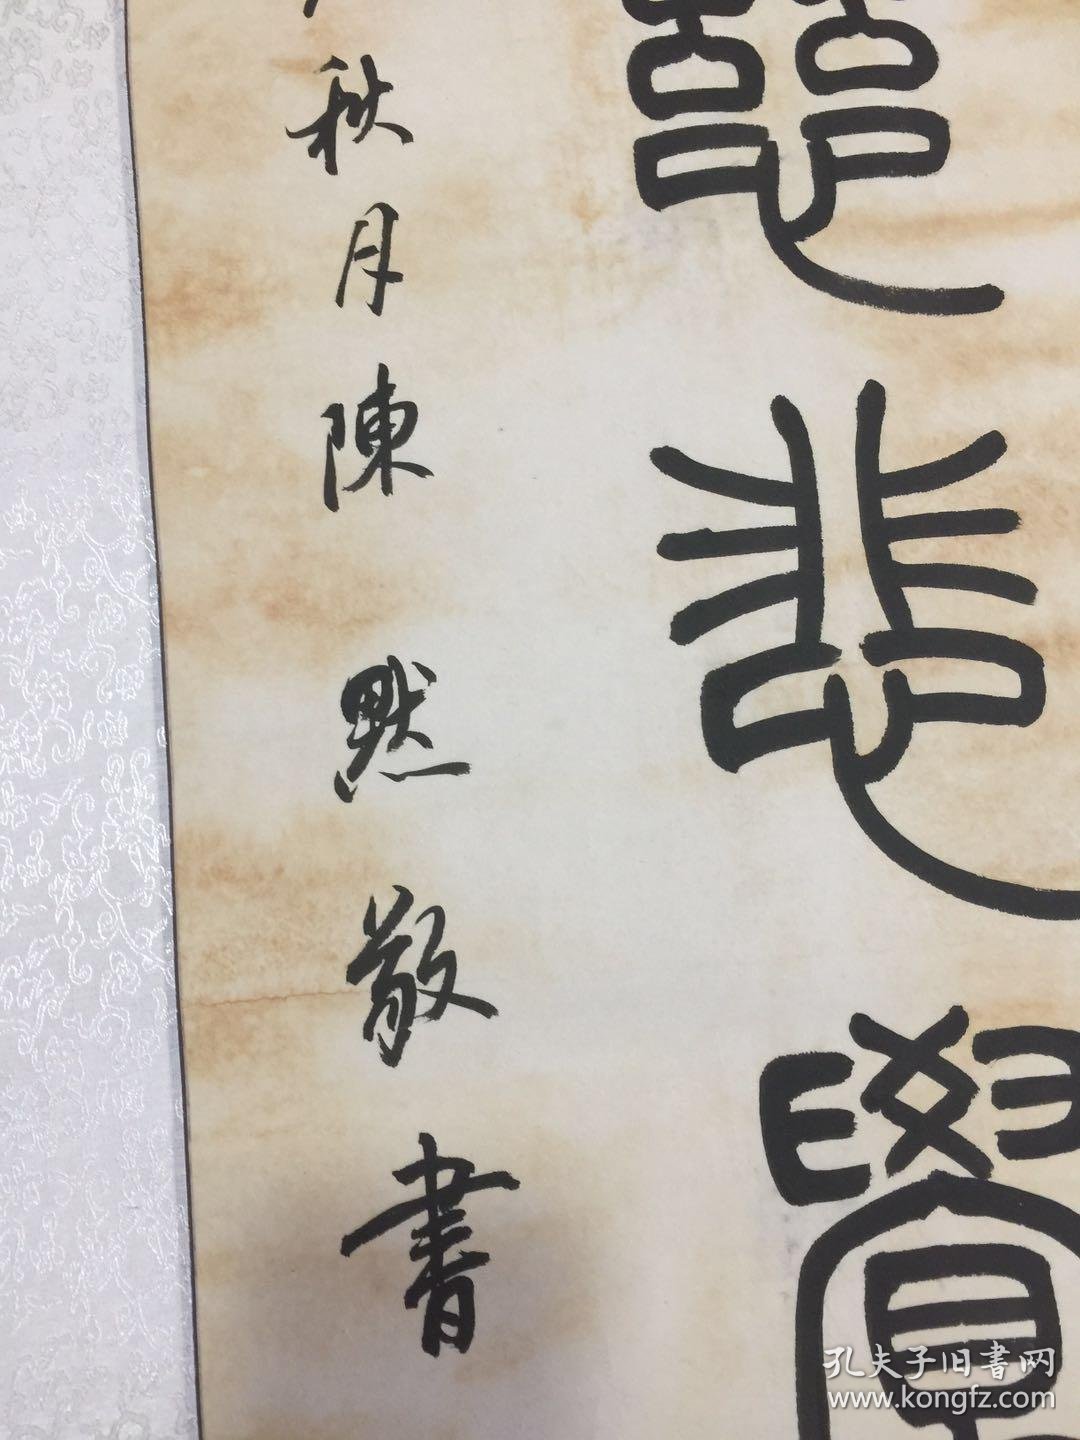 慈悲覺
秋月陳默敬書
孔夫子旧書网
www.kongfz.com